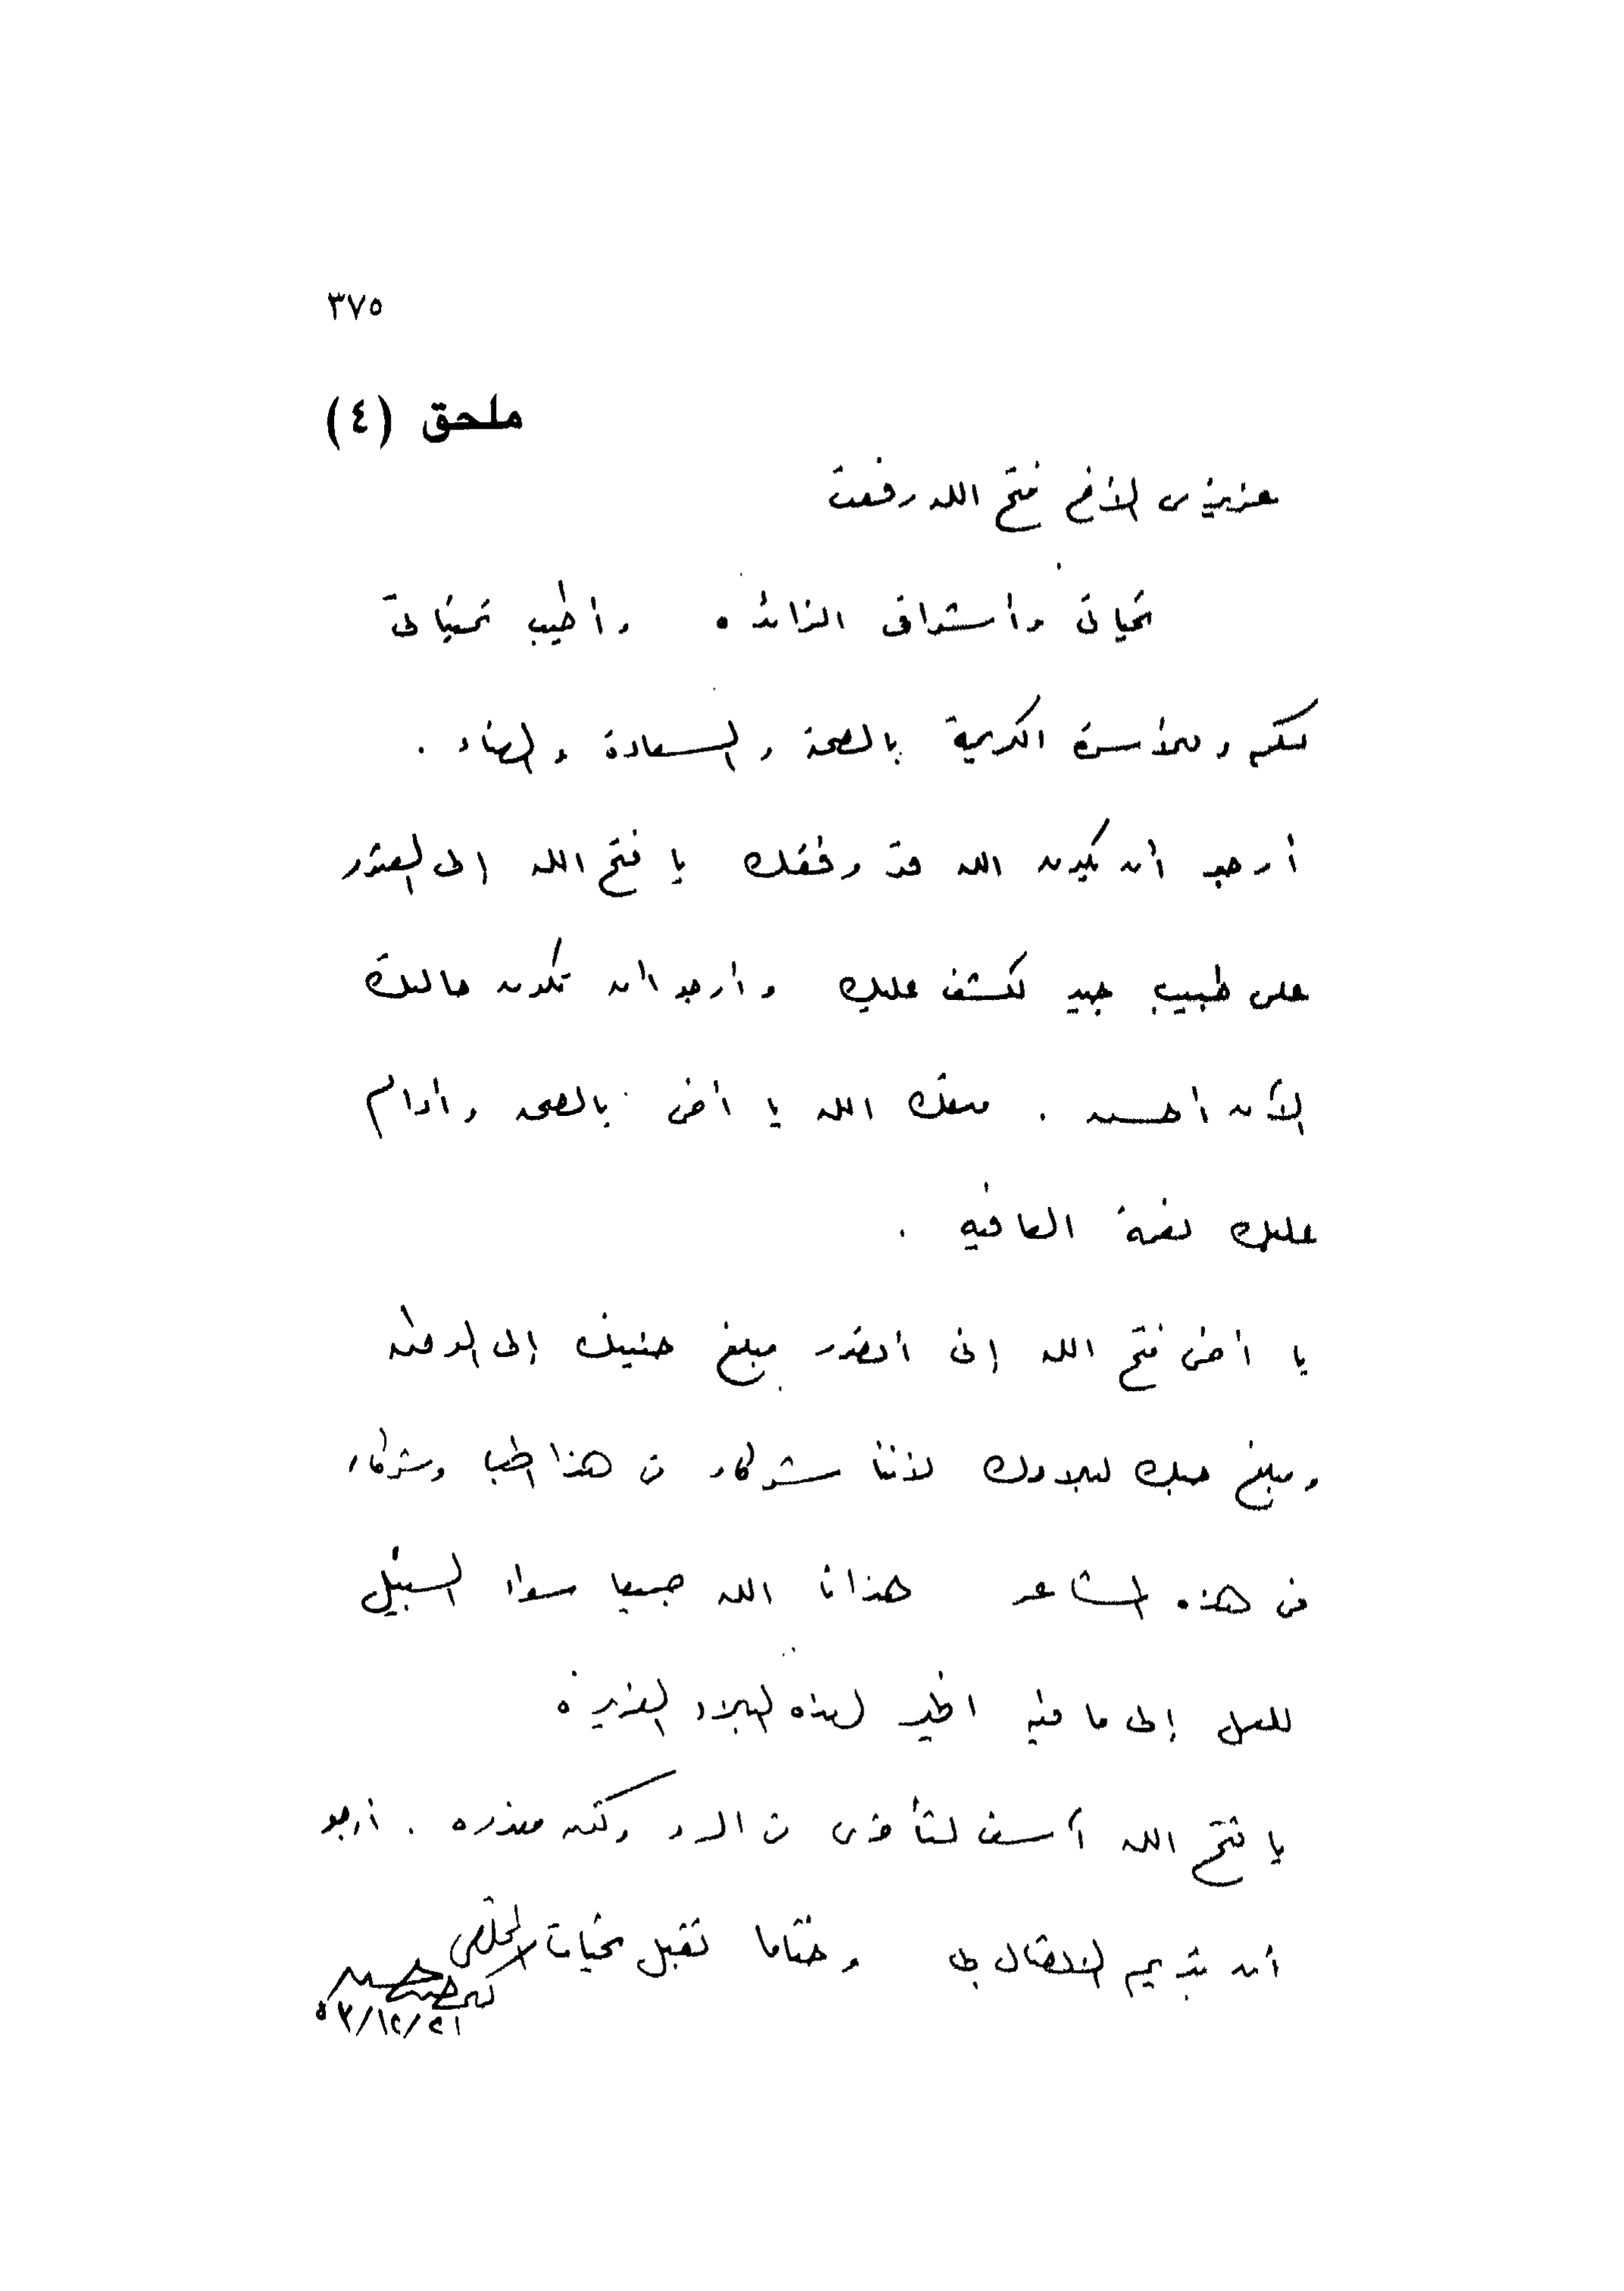 ٣٧٥
ملحق (٤)
عزيزى الأخ فتح الله رفعت
تحياتى وأشواقى الزائدة وأطيب تمنياتى
لكم وللأسرة الكريمة بالصحة والسعادة والهناء .
أرجو أن يكون الله قد وفقك يا فتح الله إلى العثور
على طبيب جيد لكشف عليك وأرجو أن تكون حالتك
الآن أحسن . متعك الله يا أخى بالصحه وأدام
عليك نعمة العافيه .
يا أخى فتح الله إنى أتصور مبلغ حنينك إلى الوطن
ومبلغ حبك لبلادك لأننا شركاء فى هذا الحب وشركاء
فى هذه المشاعر هدانا الله جميعا سواء السبيل
للعمل إلى ما فيه الخير لهذه البلاد العزيزة
يا فتح الله آسف لتأخرى فى الرد ولكن معذره . أرجو
أن تديم الاتصال بى وختاما تقبل تحيات المخلص
حسين
٢١/١٢/٥٣